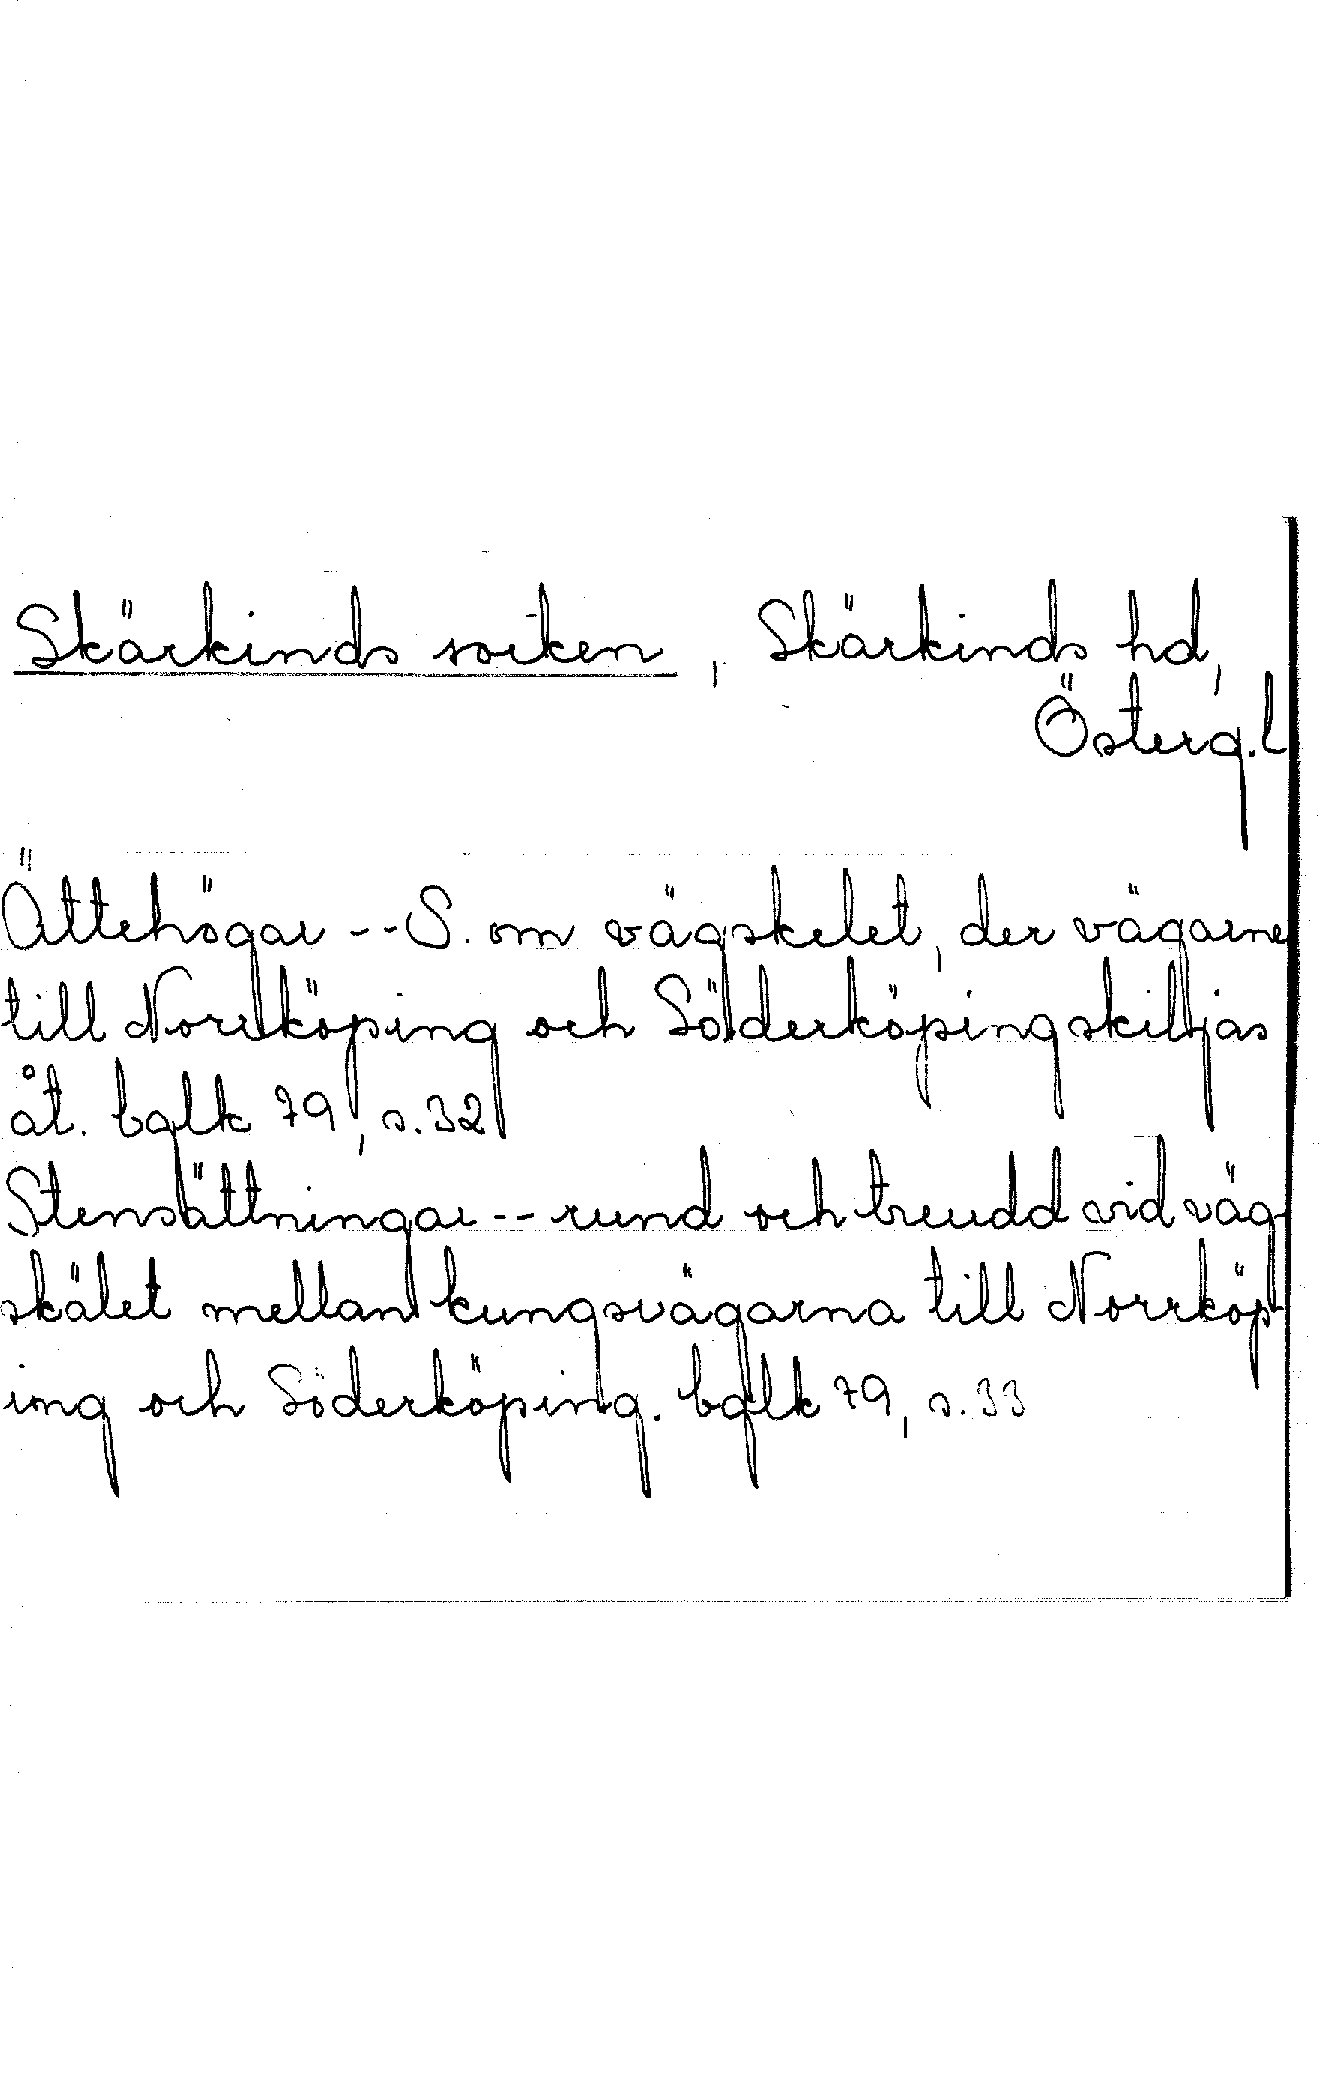 Skärkinds socken, Skärkinds hd,
Österg.l
Ättehögar -- S. om vägskelet, der vägarne
till Norrköping och Söderköping skiljas
åt. bglk 79, s. 32
Stensättningar -- rund och treudd vid väg-
skälet mellan kungsvägarna till Norrköp-
ing och Söderköping. bglk 79, s. 33